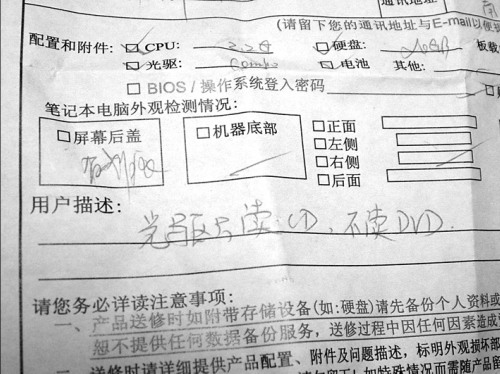 通讯地址
(请留下您的通讯地址与E-mail以便
配置和附件: CPU: 2.2G 硬盘: 板载
光驱: Combo 电池 其他:
BIOS / 操作系统登入密码
笔记本电脑外观检测情况:
屏幕后盖 机器底部 正面
左侧
有划痕 右侧
后面
用户描述: 光驱只读CD、不读DVD.
请您务必详读注意事项:
一、产品送修时如附带存储设备(如:硬盘)请先备份个人资料或
恕不提供任何数据备份服务，送修过程中因任何因素造成
送修时请详细提供产品配置、附件及问题描述，标明外观损坏部
如特殊情况而需随产品